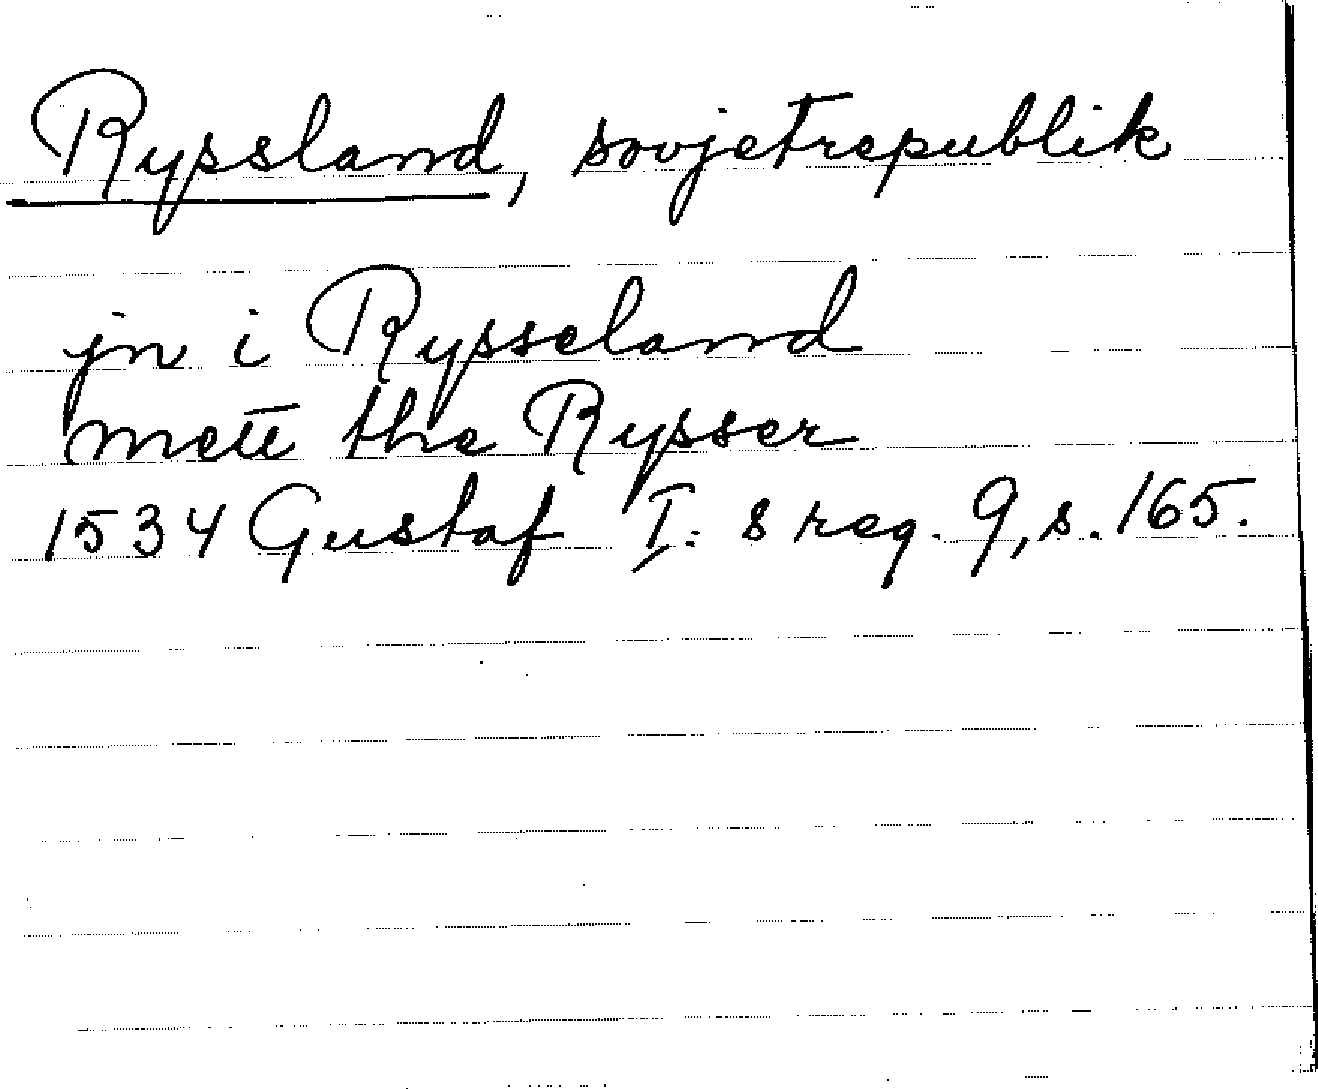 Ryssland, sovjetrepublik
jn i Rysseland
mett the Rysser
1534 Gustaf I: s reg. 9, s. 165.